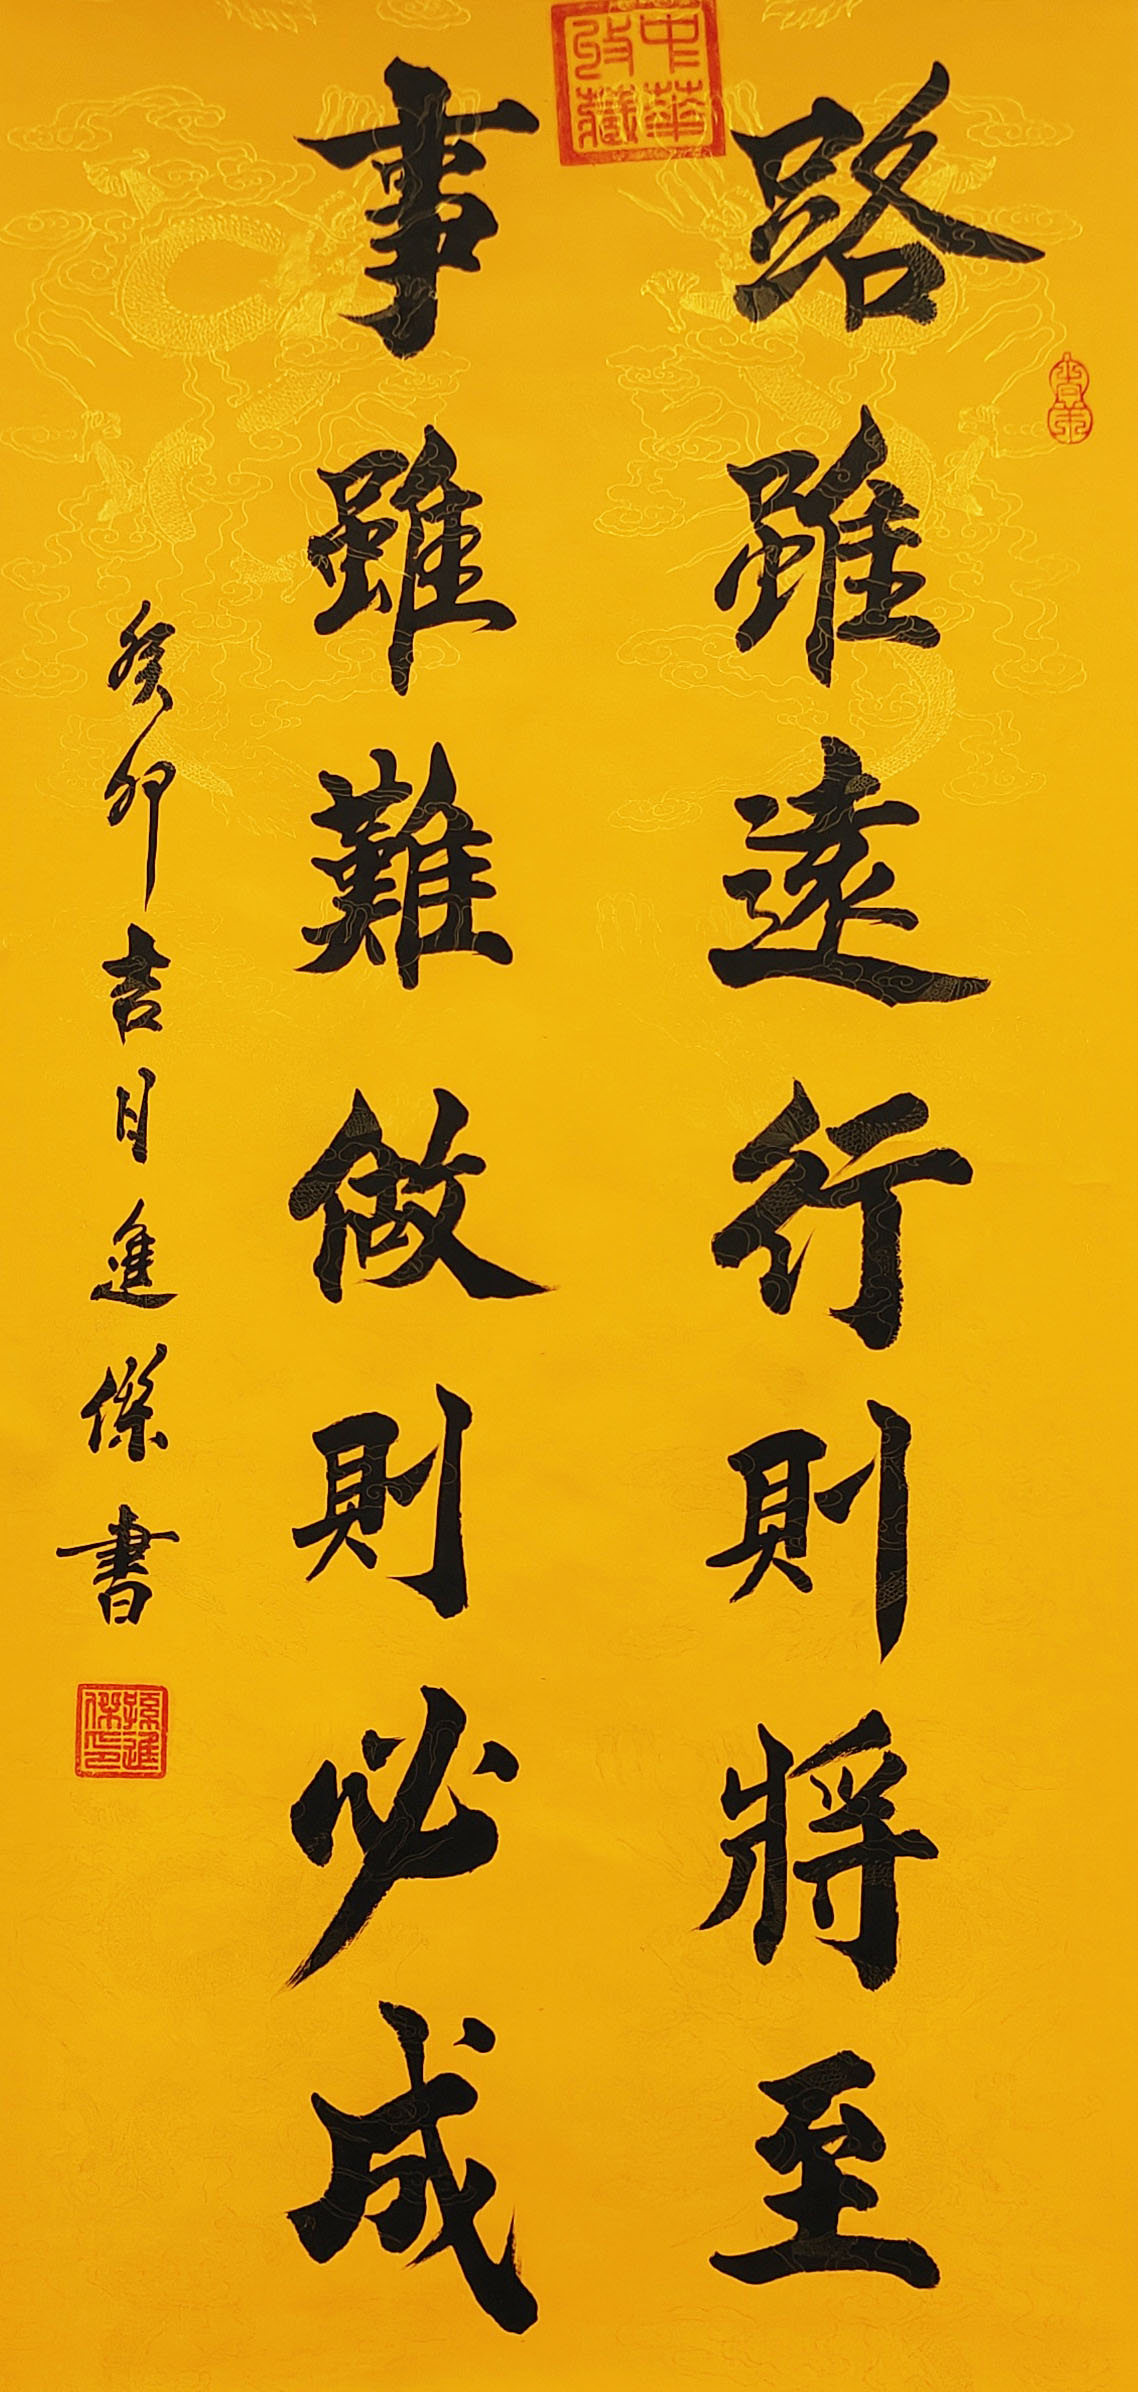 路雖遠行則將至
事雖難做則必成
癸卯吉月進傑書
中華
收藏
孫進
傑印